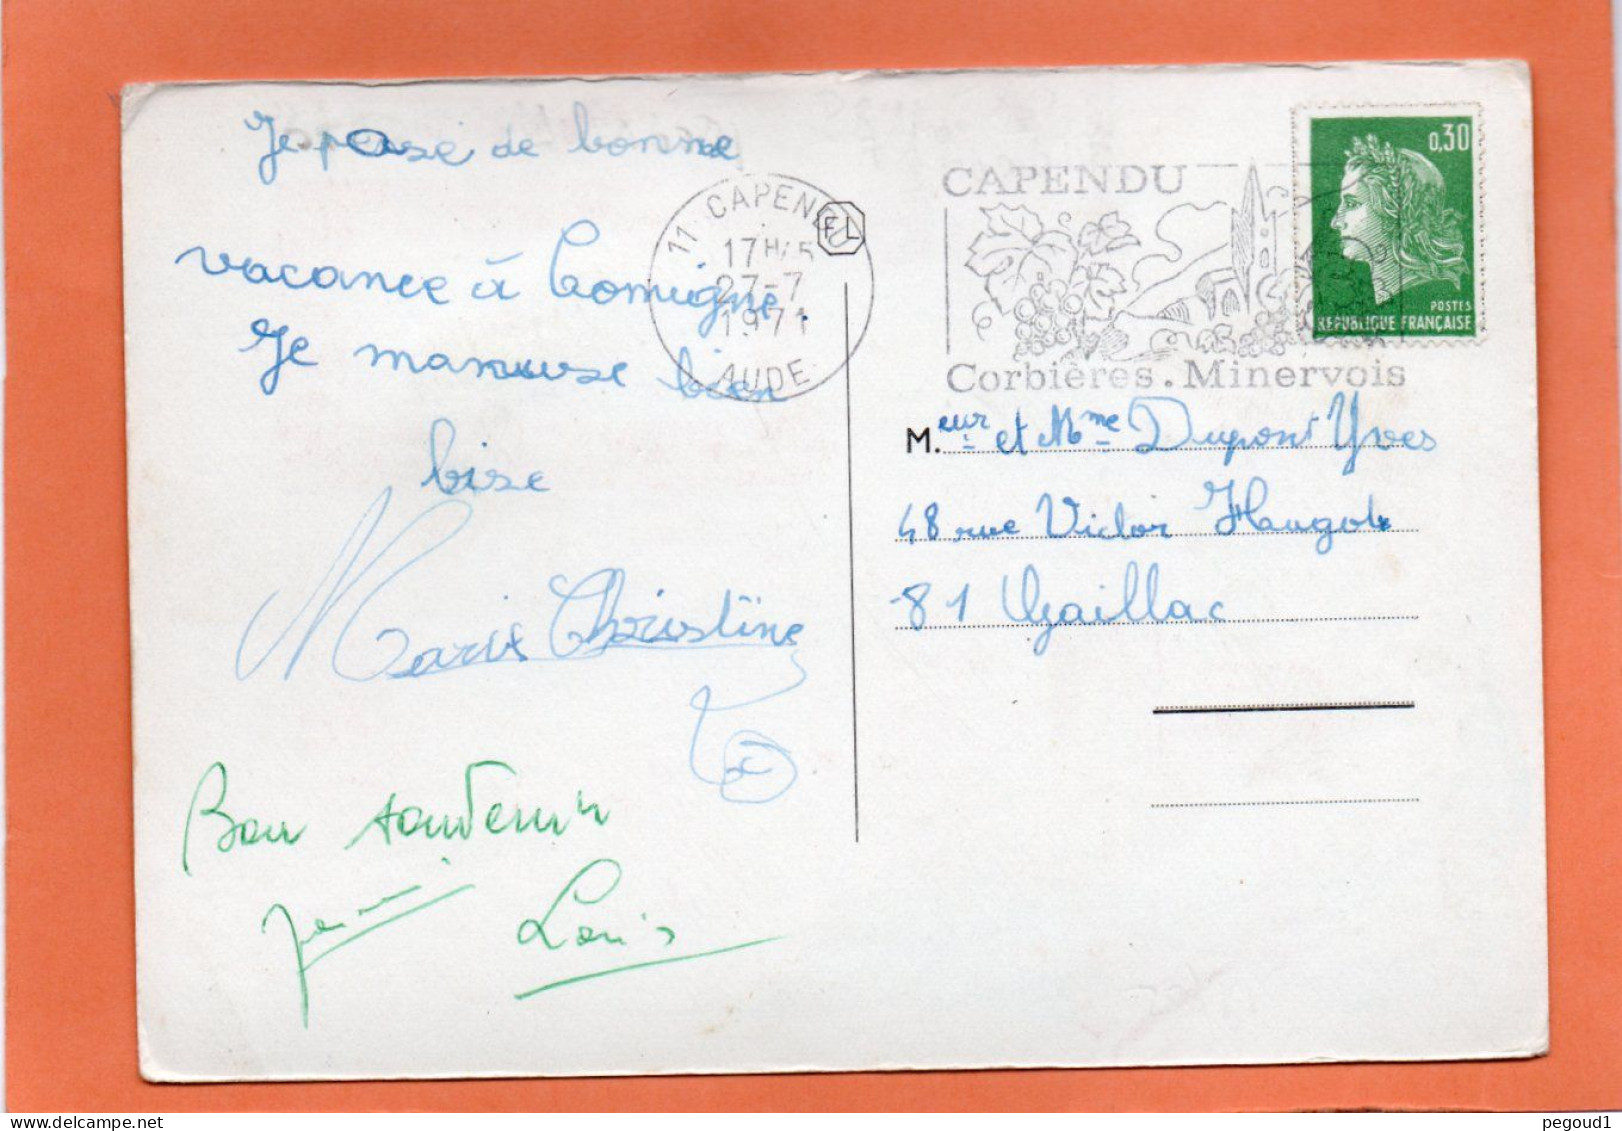 Je passe de bonne
vacance à Comigne.
Je m'amuse bien
bise
Marie Christine
Bon souvenir
Louis
11 CAPENDU
17H45
27-7
1971
AUDE
FL
CAPENDU
Corbières. Minervois
0,30
POSTES
RÉPUBLIQUE FRANÇAISE
M.eur et Mme Dupont Yves
48 rue Victor Hugot
81 Gaillac
pegoud1